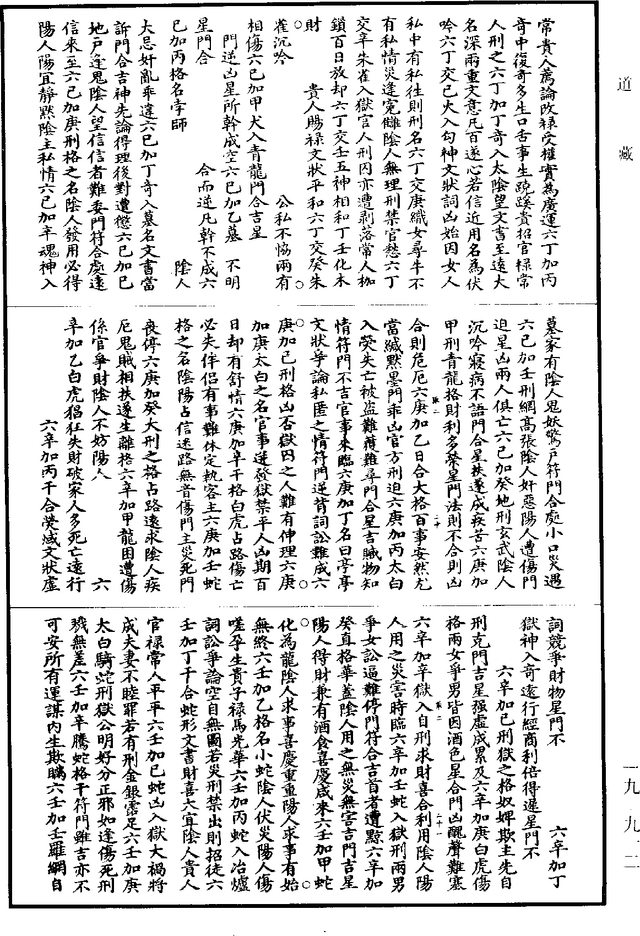 道藏
常貴人薦論改祿受權實為廣運六丁加丙
奇中復奇多生口舌事生蹺蹊貴招官祿常
人刑之六丁加丁奇入太陰望文書至遠大
名深兩重文意凡百遂心若信近用名為伏
吟六丁交己火入勾神文狀詞凶始因女人
私中有私往則刑名六丁交庚織女尋牛不
有私情災逢寃讎陰人無理刑禁官愁六丁
交辛朱雀入獄官人刑因亦遭剥落常人枷
鎖百日放却六丁交壬五神相和丁壬化木
財　　貴人賜祿文狀平和六丁交癸朱
雀沉吟　　　　　　　公私不恊兩有
相傷六己加甲犬入青龍門合吉星
門逆凶星所幹成空六己加乙墓　不明
星門合　　　　　合而逆凡幹不成六
己加丙格名孛師　　　　　　　陰人
大忌奸亂乖違六己加丁奇入墓名文書當
訴門合吉神先論得理後對遭愆六己加己
地戶逢鬼陰人望信信者難委門符合處遠
信來至六己加庚刑格之名陰人發用必得
陽人陽宜靜黙陰主私情六己加辛魂神入
墓家有陰人鬼妖驚戶符門合處小口災遇
六己加壬刑網高張陰人奸惡陽人遭傷門
迫星凶兩人俱亡六己加癸地刑玄武陰人
沉吟寢病不語門合星扶遂成疾苦六庚加
甲刑青龍格財利多榮星門法則不合則凶
合則危厄六庚加乙日合大格百事安然尤
當緘黙墨門乖凶官方刑迫六庚加丙太白
入熒失亡被盜難獲難尋門合星吉賊物知
情符門不吉官事來臨六庚加丁名曰亭亭
文狀爭論私匿之情符門逆背詞訟難成六
庚加己刑格凶否獄囚之人難有伸理六庚
加庚太白之名官事迸發獄禁平人凶期百
日却有舒情六庚加辛干格白虎占路傷亡
必失伴侶有事難休定執客主六庚加壬蛇
格之名陰陽占信迷路無音傷門主災死門
喪停六庚加癸大刑之格占路遠求陰人疾
厄鬼賊相扶遂生離格六辛加甲龍困遭傷
係官爭財陰人不妨陽人　　　　　　六
辛加乙白虎猖狂失財破家人多死亡遠行
六辛加丙干合熒惑文狀虛
詞競爭財物星門不　　　　　六辛加丁
獄神入奇遠行經商利倍得遲星門不
六辛加己刑獄之格奴婢欺主先自
刑克門吉星强虛成累及六辛加庚白虎傷
格兩女爭男皆因酒色星合門凶醜聲難塞
六辛加辛獄入自刑求財喜合利用陰人陽
人用之災害時臨六辛加壬蛇入獄刑兩男
爭女訟逼難停門符合吉首者遭黥六辛加
癸直格華蓋陰人用之無災無害吉門吉星
陽人得財兼有酒食喜慶咸來六壬加甲蛇
化為龍陰人求事喜慶重重陽人求事有始
無終六壬加乙格名小蛇陰人伏災陽人傷
嗟孕生貴子祿馬光華六壬加丙蛇入冶爐
詞訟爭論空自無圖若災刑禁出則招徒六
壬加丁千合蛇形文書財喜大宜陰人貴人
官祿常人平平六壬加己蛇凶入獄大禍將
成夫妻不睦罪若有刑金銀露足六壬加庚
太白騎蛇刑獄公明好分正邪如逢傷死刑
殘無差六壬加辛騰蛇格干符門雖吉亦不
可安所有運謀內生欺瞞六壬加壬羅網自
一九·九二